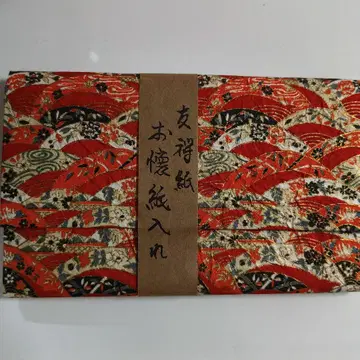 友禅紙
お懐紙入れ